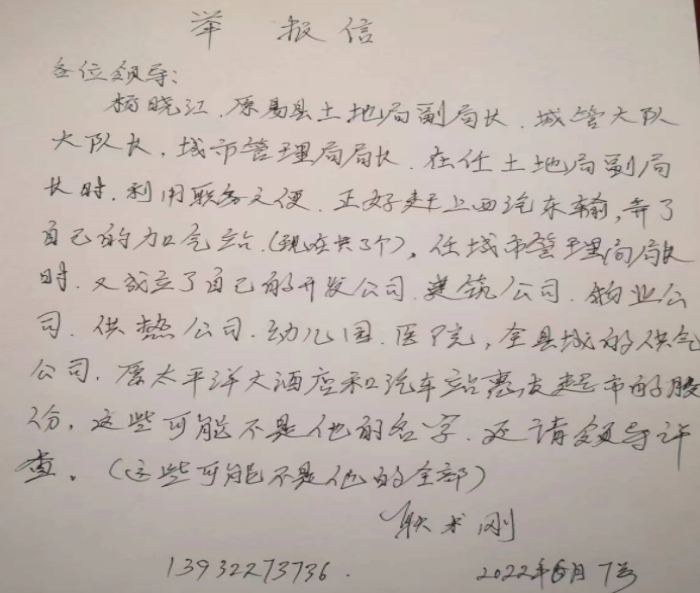 举报信
各位领导：
杨晓江，原易县土地局副局长，城管大队
大队长，城市管理局局长，在任土地局副局
长时，利用职务之便，正好赶上西汽东输，弄了
自己的加气站（现在共3个），任城市管理局局长
时，又成立了自己的开发公司，建筑公司，物业公
司，供热公司，幼儿园，医院，全县城的供气
公司，原太平洋大酒店和汽车站惠友超市的股
份，这些可能不是他的名字，还请领导详
查。（这些可能不是他的全部）
耿术刚
13932273736.
2022年6月7号